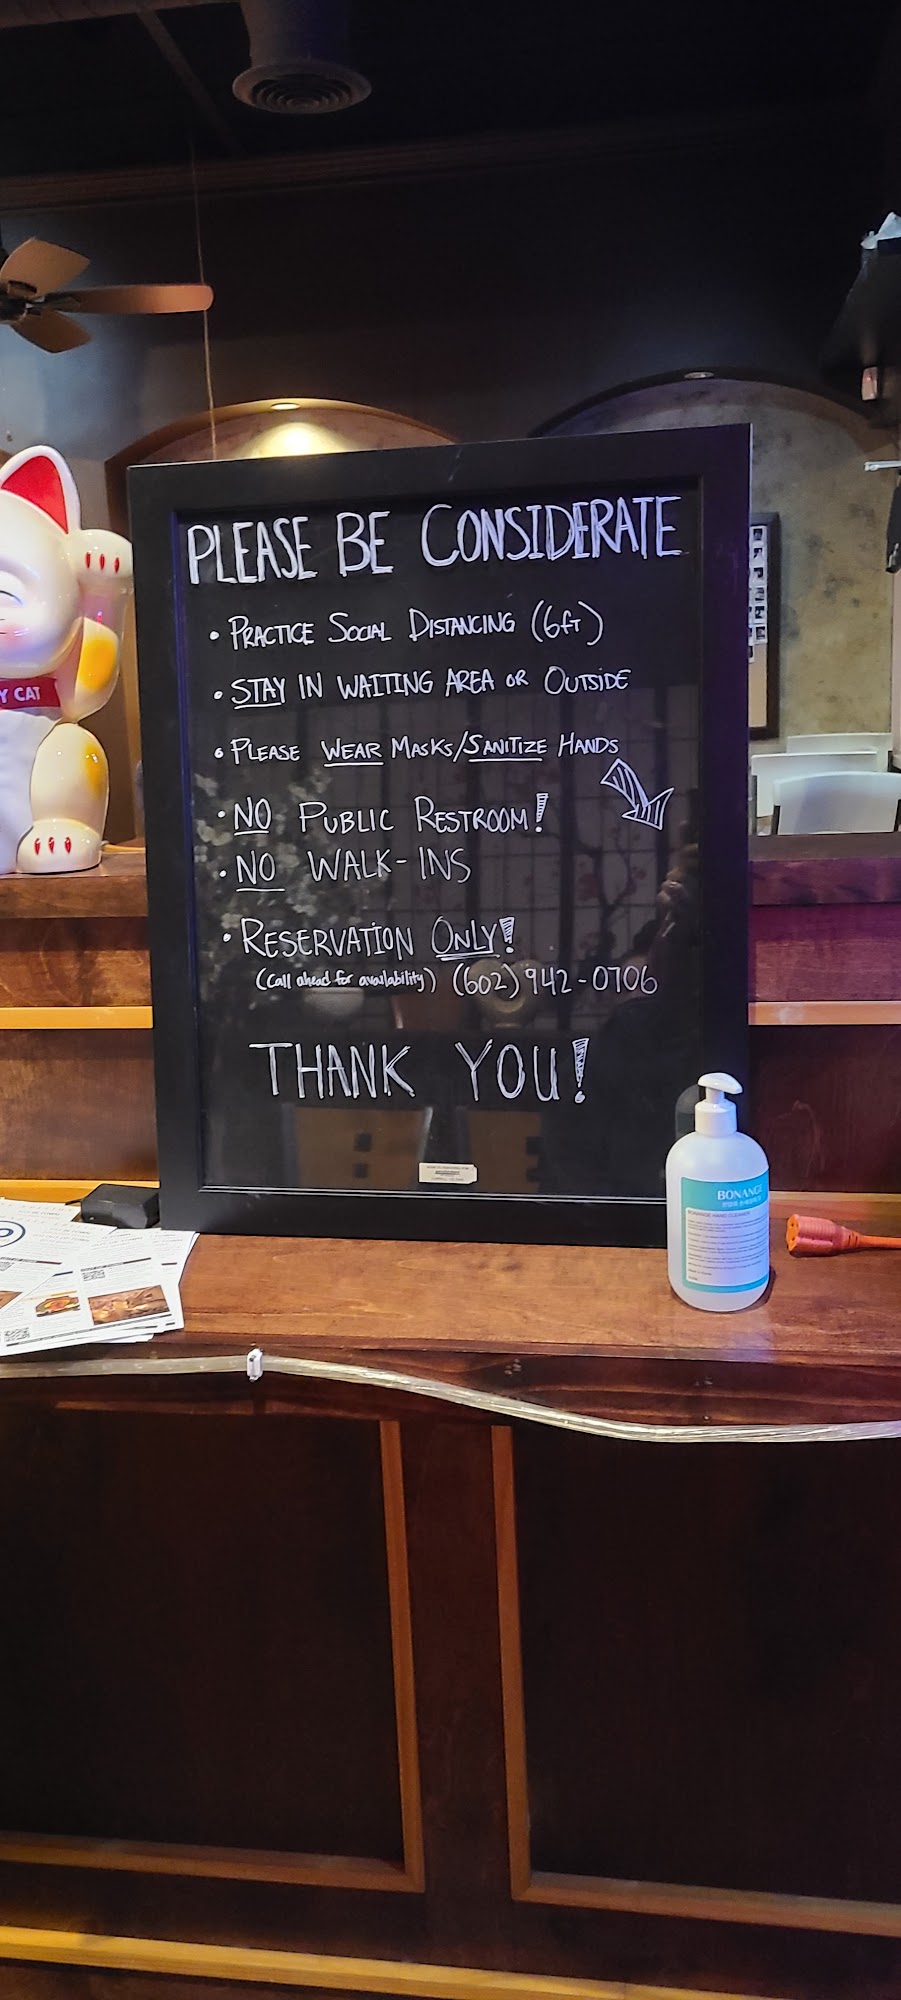 PLEASE BE CONSIDERATE
• PRACTICE SOCIAL DISTANCING (6ft)
• STAY IN WAITING AREA OR OUTSIDE
• PLEASE WEAR MASKS/SANITIZE HANDS
• NO PUBLIC RESTROOM!
• NO WALK-INS
• RESERVATION ONLY!
(Call ahead for availability) (602) 942-0706
THANK YOU!
Y CAT
BONANGE
BONANGE HAND CLEANER